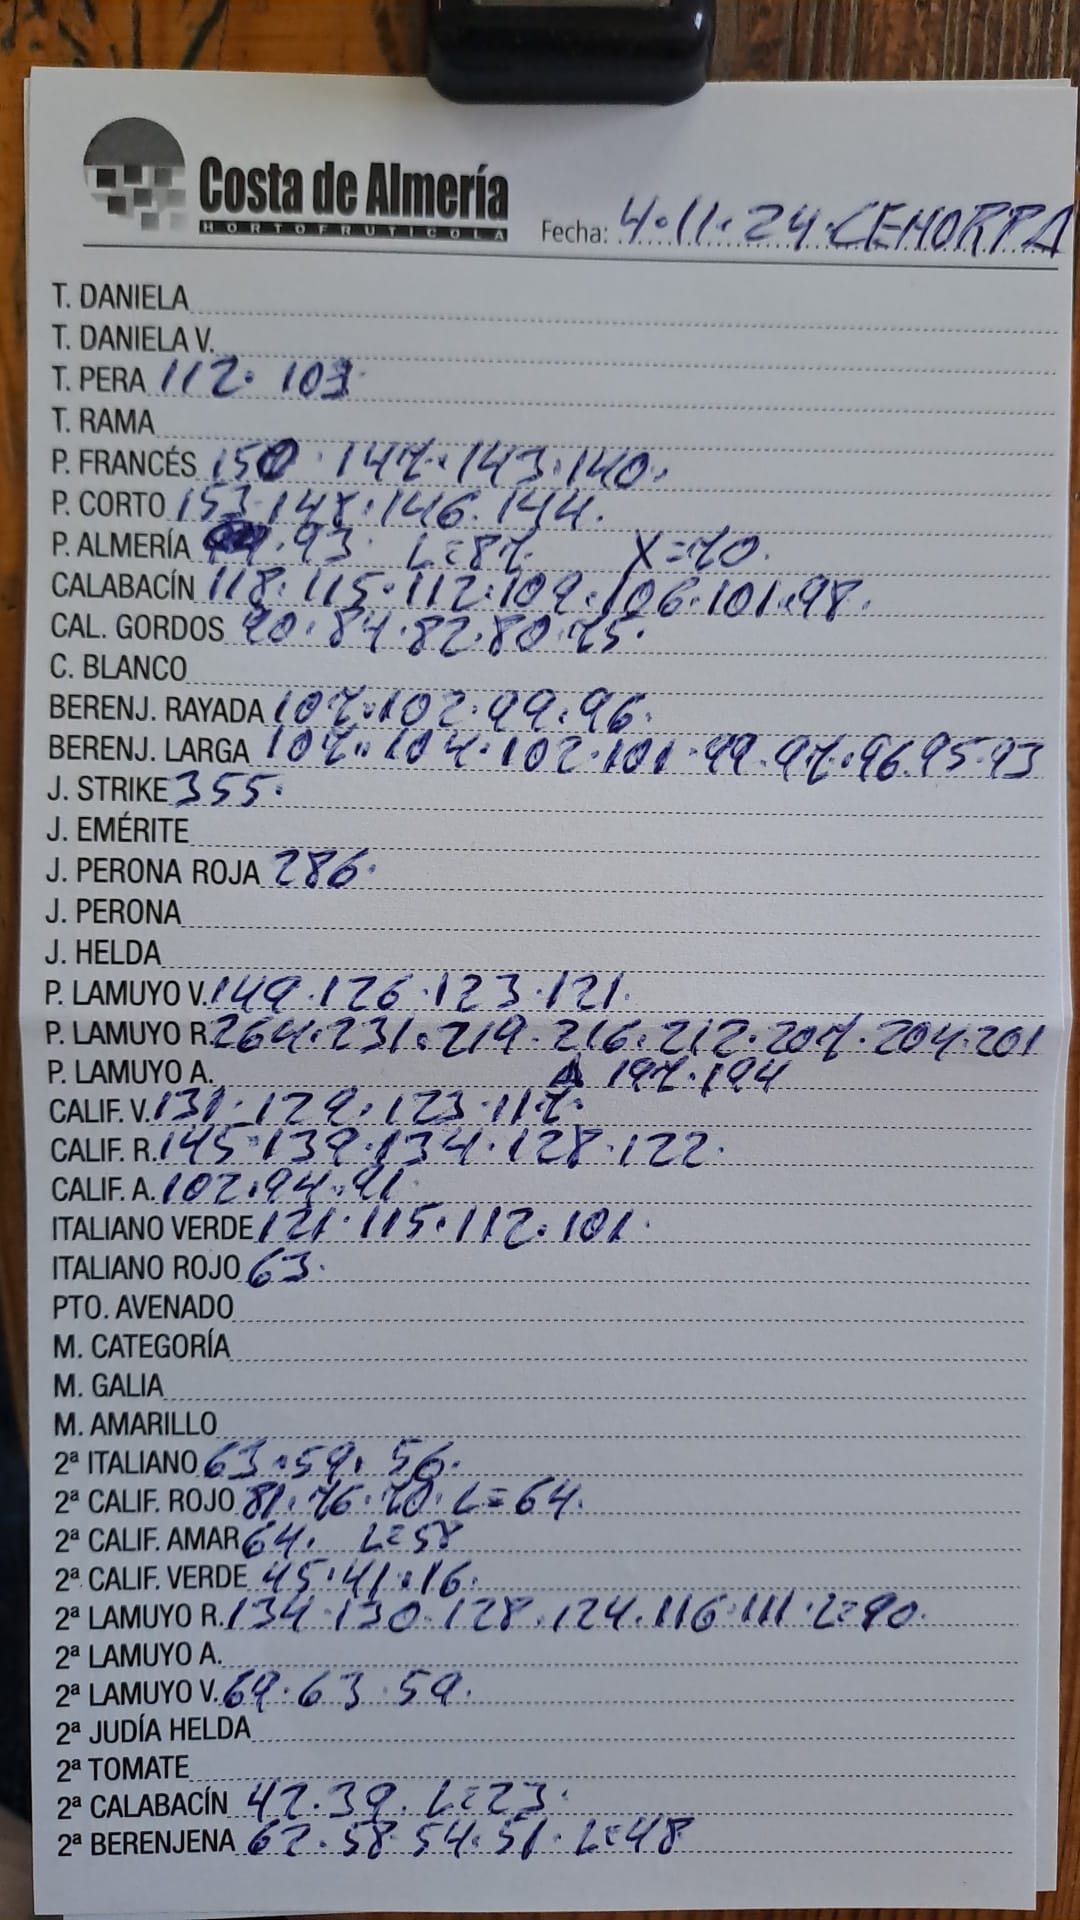 Costa de Almería
HORTOFRUTICOLA
Fecha: 4.11.24.CEHORPA
T. DANIELA
T. DANIELA V.
T. PERA 112. 103
T. RAMA
P. FRANCÉS 150.147.143.140.
P. CORTO 153.148.146.144.
P. ALMERÍA .93. L=87. X=70.
CALABACÍN 118.115.112.109.106.101.98.
CAL. GORDOS 90.84.82.80.75.
C. BLANCO
BERENJ. RAYADA 107.102.99.96.
BERENJ. LARGA 107.104.102.101.99.97.96.95.93
J. STRIKE 355.
J. EMÉRITE
J. PERONA ROJA 286.
J. PERONA
J. HELDA
P. LAMUYO V. 149.126.123.121.
P. LAMUYO R. 264.231.219.216.212.207.204.201
P. LAMUYO A. 197.194
CALIF. V. 131.129.123.117.
CALIF. R. 145.139.134.128.122.
CALIF. A. 102.94.91
ITALIANO VERDE 121.115.112.101.
ITALIANO ROJO 63.
PTO. AVENADO
M. CATEGORÍA
M. GALIA
M. AMARILLO
2ª ITALIANO 63.59. 56.
2ª CALIF. ROJO 81.76.70. L=64.
2ª CALIF. AMAR 64. L=58
2ª CALIF. VERDE 45.41.16.
2ª LAMUYO R. 134.130.128.124.116.111.L=90.
2ª LAMUYO A.
2ª LAMUYO V. 69.63.59.
2ª JUDÍA HELDA
2ª TOMATE
2ª CALABACÍN 42.39. L=23.
2ª BERENJENA 62.58.54.51. L=48